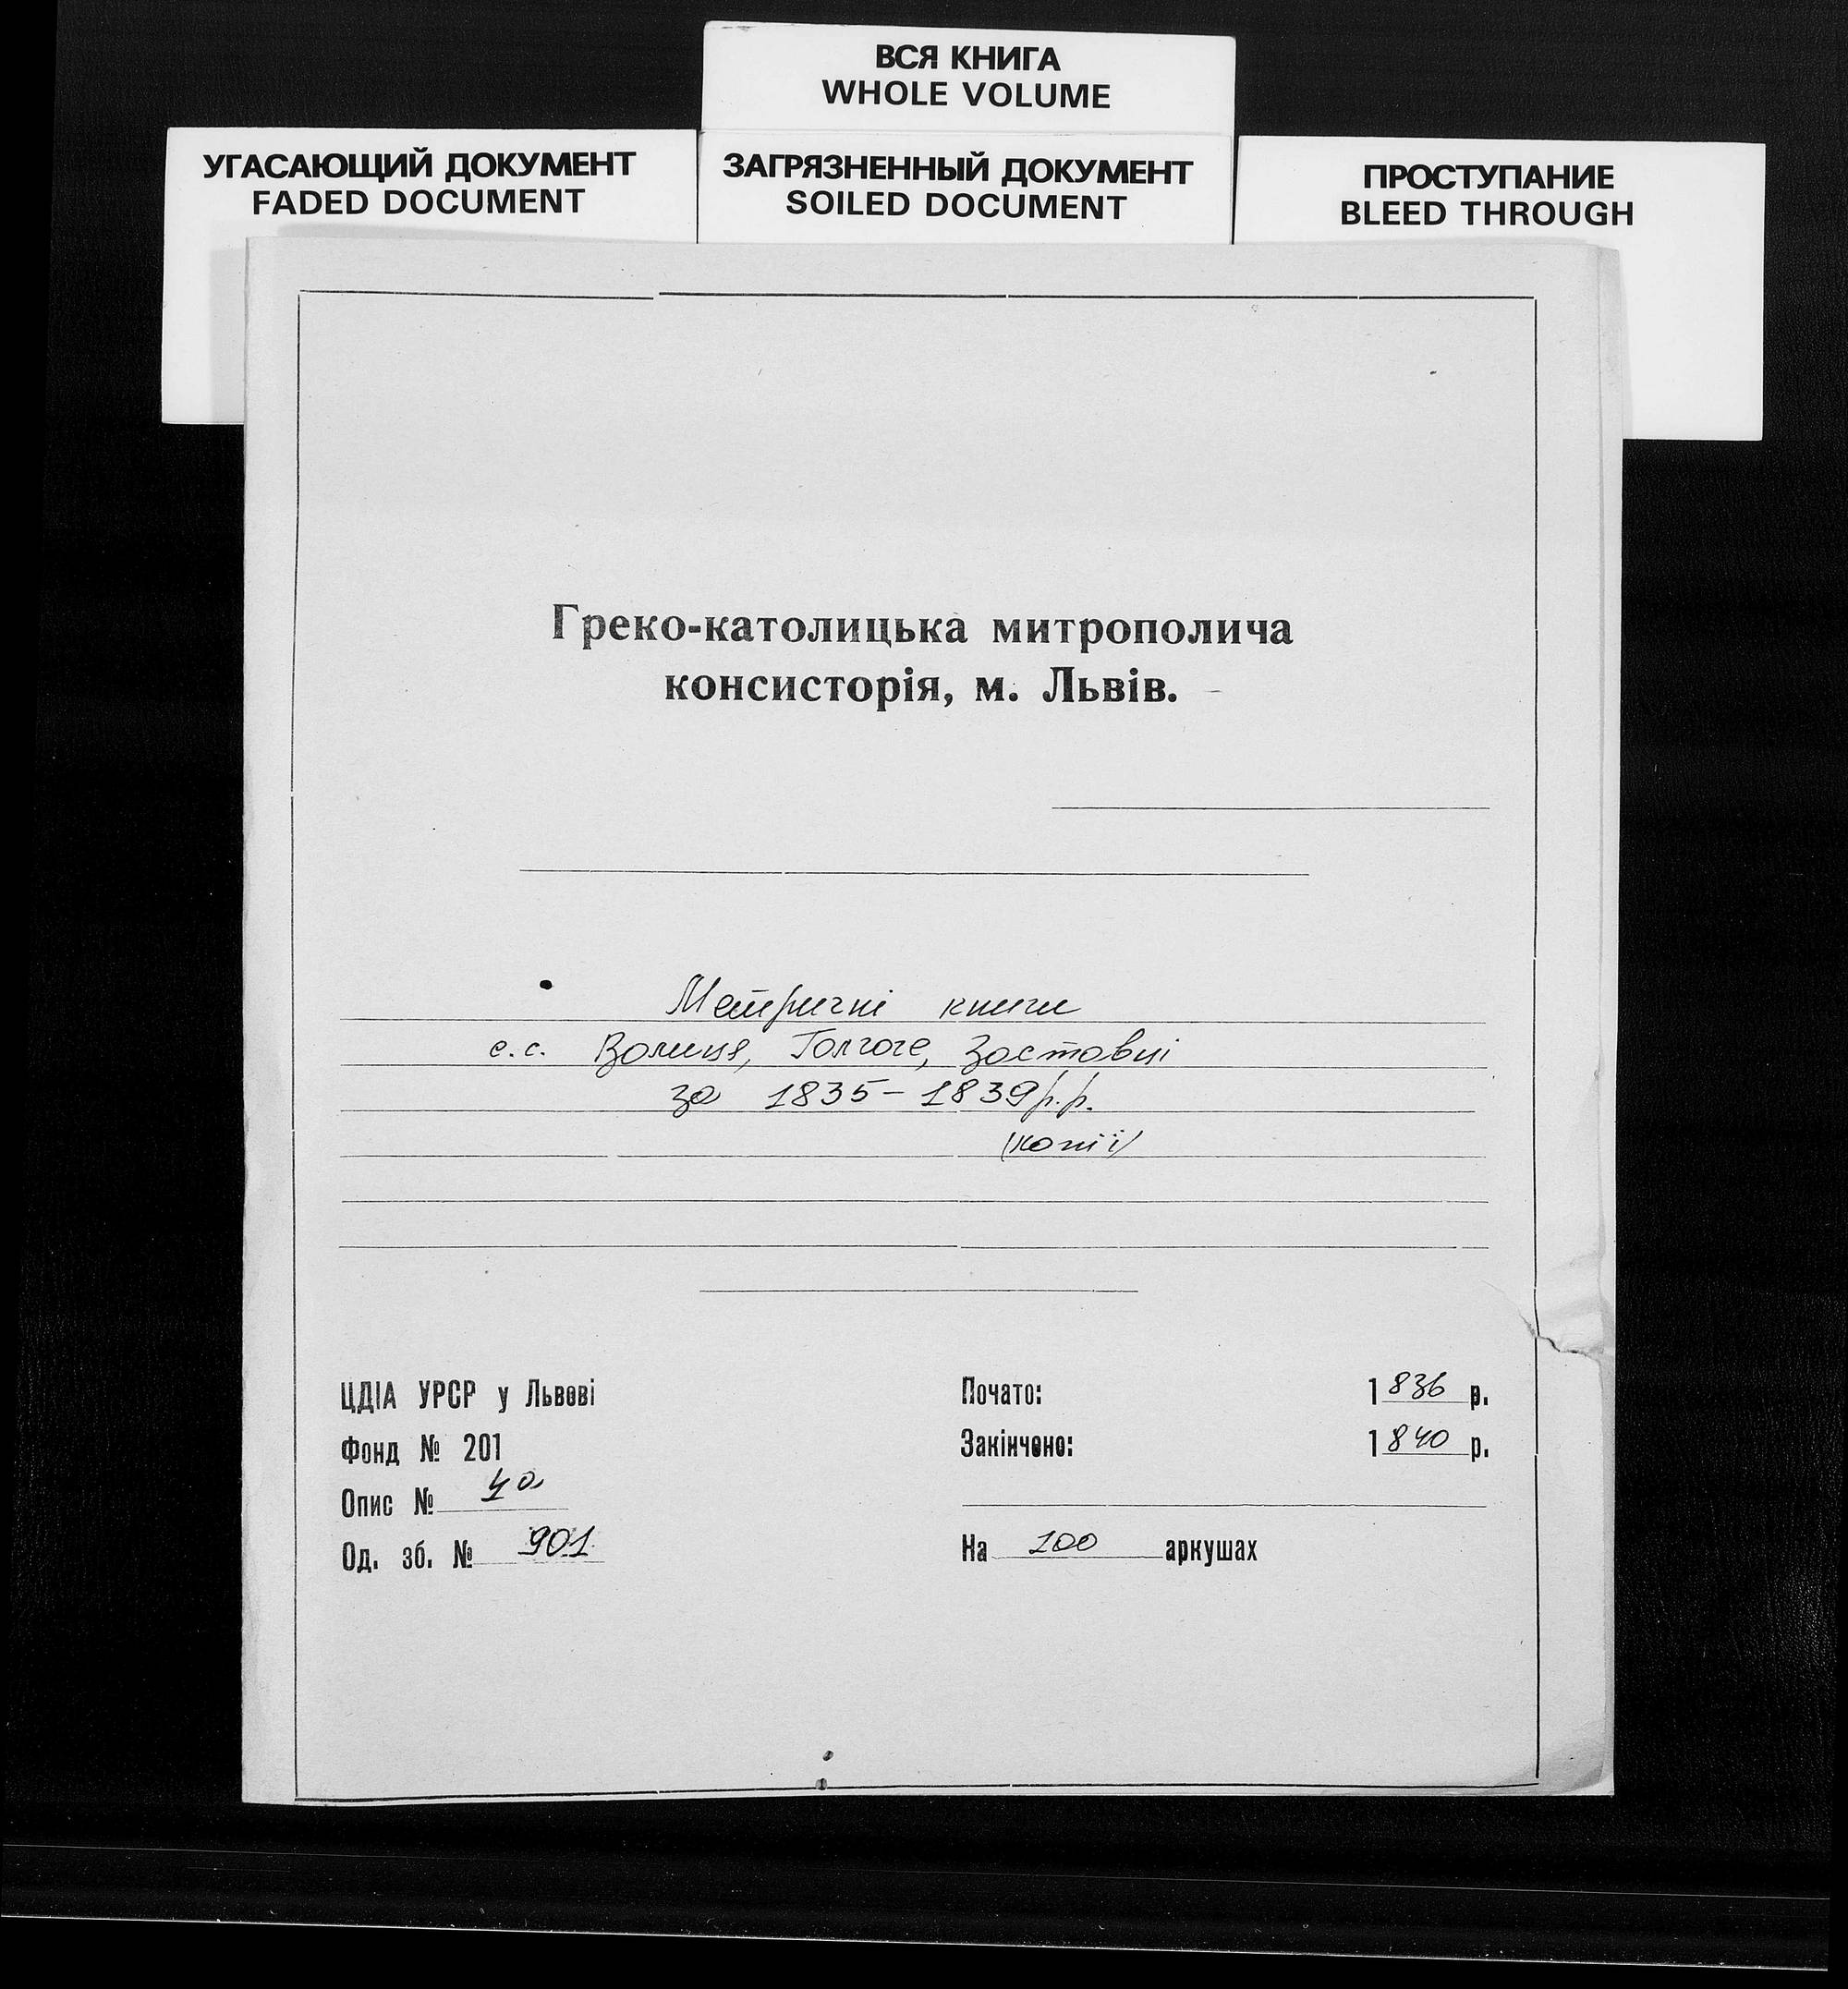 ВСЯ КНИГА
WHOLE VOLUME
УГАСАЮЩИЙ ДОКУМЕНТ
FADED DOCUMENT
ЗАГРЯЗНЕННЫЙ ДОКУМЕНТ
SOILED DOCUMENT
ПРОСТУПАНИЕ
BLEED THROUGH
Греко-католицька митрополича
консисторія, м. Львів.
Метричні книги
с.с. Волиця, Голгоче, Заставці
за 1835-1839 р.р.
(копії)
ЦДІА УРСР у Львові
Фонд № 201
Опис № 4а
Од. зб. № 901.
Почато: 1836 р.
Закінчено: 1840 р.
На 100 аркушах